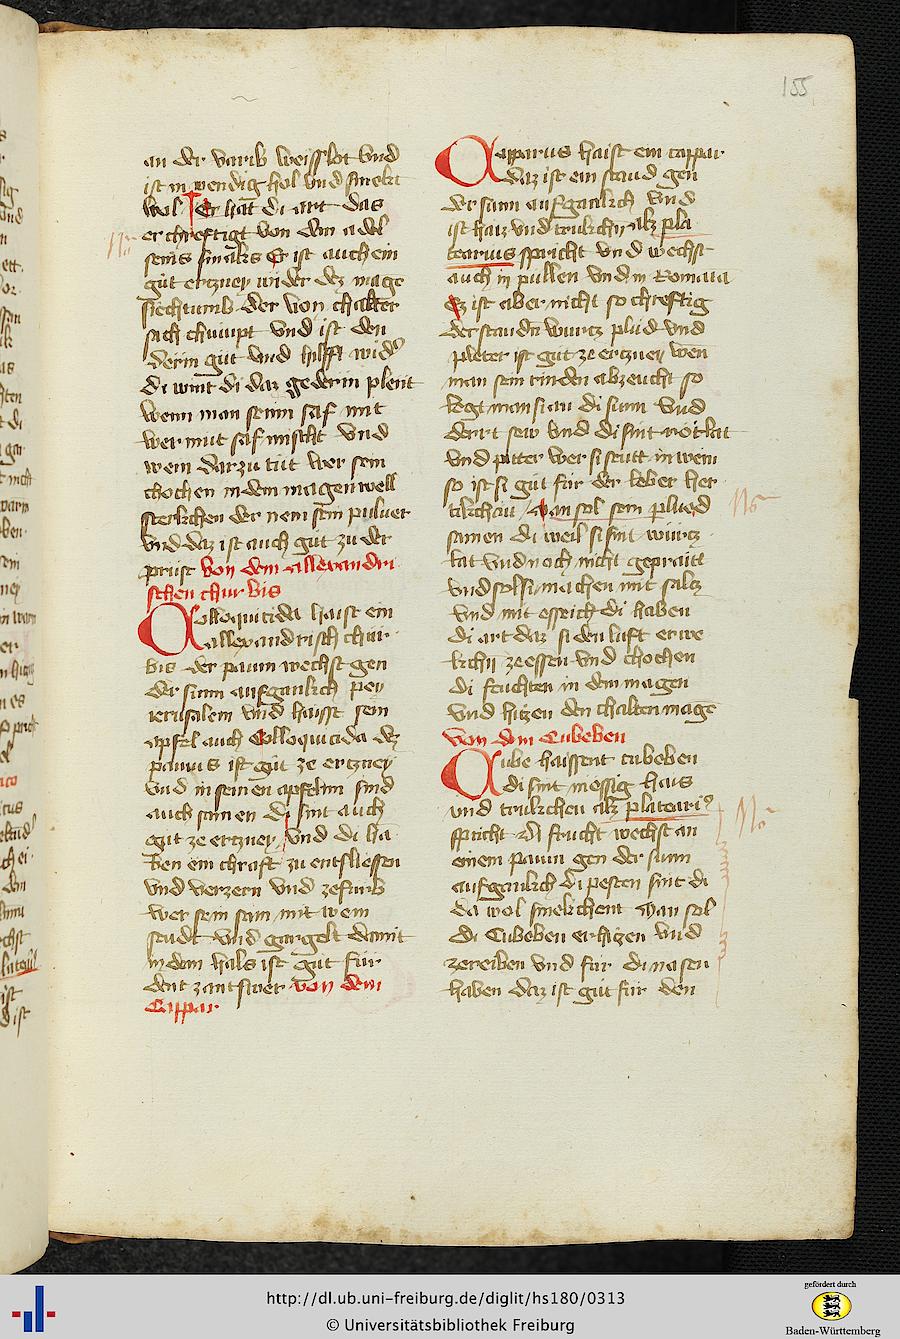 155
an der varib weisslot vnd
ist in wendig hol vnd smekt
wol Er hat di art das
er chreftigt von dem adel
seins smaks Er ist auch ein
gut ertzney wider dez mage
siechtumb der von chalter
sach chumpt vnd ist den
derm gut vnd hilfft wid
di wint di daz gederm plent
wenn man seinn saf mit
wermut saf mischt vnd
wein dartzu tut wer sein
chochen in dem magen well
sterkchen der nem sein puluer
vnd daz ist auch gut zu der
prust von dem allexandri
schen churbis
Colloquitida haist ein
allexandrisch chur
bis der paum wechst gen
der sunn aufganckch pey
ierusalem vnd haisst sein
apfel auch Colloquitida dez
paums ist gut ze ertzney
vnd in seinen apfelnn sind
auch samen di sint auch
gut ze ertzney vnd di ha
ben ein chraft zu entsliessen
vnd verzern vnd zefurb
wer sein sam mit wein
seudt vnd gargelt damit
in dem hals ist gut fur
den zantswer von dem
Cappar
Capparus haist ein cappar
daz ist ein staud gen
der sunn aufganckch vnd
ist haiz vnd trukchn alz pla
tearius spricht vnd wechst
auch in pullen vnd in Romana
Ez ist aber nicht so chreftig
der staudn wurtz plud vnd
pleter ist gut ze ertzney wen
man sein rinden abzeucht so
legt man si an di sunn vnd
derrt sew vnd di sint rotlat
vnd pitter wer si seutt in wein
so ist si gut fur der leber her
tikchait Man sol sein plued
samen di weil si sint wurtz
lat vnd noch nicht gepraitt
vnd sol si machen mit saltz
vnd mit esseich di haben
di art daz si den luft erwe
kchn ze essen vnd chochen
di feuchten in dem magen
vnd hitzen den chalten mage
von dem Cubeben
Cube haissent cubeben
di sint messig hais
vnd trukchen alz plateari
spricht di frucht wechst an
einem paum gen der sunn
aufganckch di pesten sint di
da wol smekchent Man sol
di Cubeben erhitzen vnd
zereiben vnd fur di nasen
haben daz ist gut fur den
http://dl.ub.uni-freiburg.de/diglit/hs180/0313
© Universitätsbibliothek Freiburg
gefördert durch
Baden-Württemberg